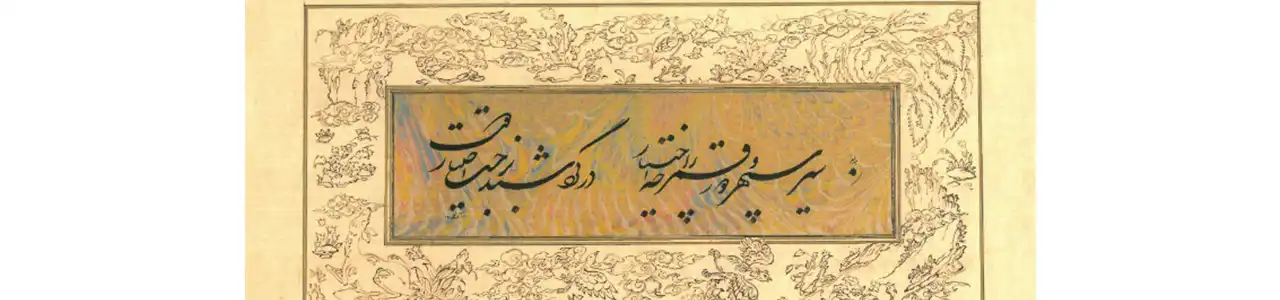 سیر سپهر و دور قمر را چه اختیار در گردشند بر حسب اختیار دوست